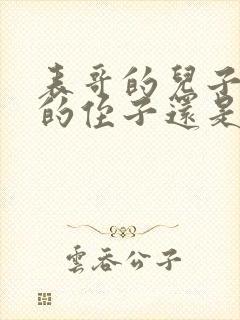 表哥的兒子
的侄子還是
雲吞公子